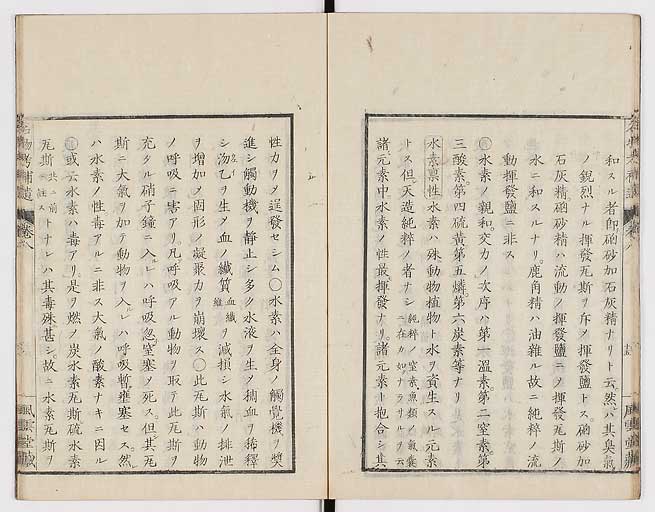 和スル者即硇砂加石灰精ナリト云然ハ其臭氣
ノ鋭烈ナル揮發瓦斯ヲ斥メ揮發鹽トス硇砂加
石灰精硇砂精ハ流動ノ揮發鹽ニメ揮發瓦斯ノ
水ニ和スルナリ鹿角精ハ油雜ル故ニ純粹ノ流
動揮發鹽ニ非ス
水素ノ親和交力ノ次序ハ第一溫素第二窒素第
三酸素第四硫黄第五燐第六炭素等ナリ
水素稟性 水素ハ殊動物植物ト水ヲ資生スル元素
トス但天造純粹ノ者ナシ純粹ノ窒素魚類ノ氣囊
ニ在カ如ナラサルヲ云
諸元素中水素ノ性最揮發ナリ諸元素ト抱合シ其
風雲堂藏
性力ヲメ逞發セシム〇水素ハ全身ノ觸覺機ヲ奬
進シ觸動機ヲ靜止シ多ク水液ヲ生メ稠血ヲ稀釋
シ泑乙ヲ生メ血ノ纖質血纖維ヲ減損シ水氣ノ排泄
ヲ增加メ固形ノ凝聚力ヲ崩壞ス〇此瓦斯ハ動物
ノ呼吸ニ害アリ凡呼吸アル動物ヲ取テ此瓦斯ヲ
充タル硝子鐘ニ入レハ呼吸忽窒塞メ死ス但其瓦
斯ニ大氣ヲ加テ動物ヲ入レハ呼吸暫壅塞セス然
ハ水素ノ性毒アルニ非ス大氣ノ酸素ナキニ因ル
或云水素ハ毒アリ是ヲ燃ノ炭水素瓦斯硫水素
瓦斯共ニ前ニ註ストナシハ其毒殊甚シ故ニ水素瓦斯
卷八
風雲堂藏